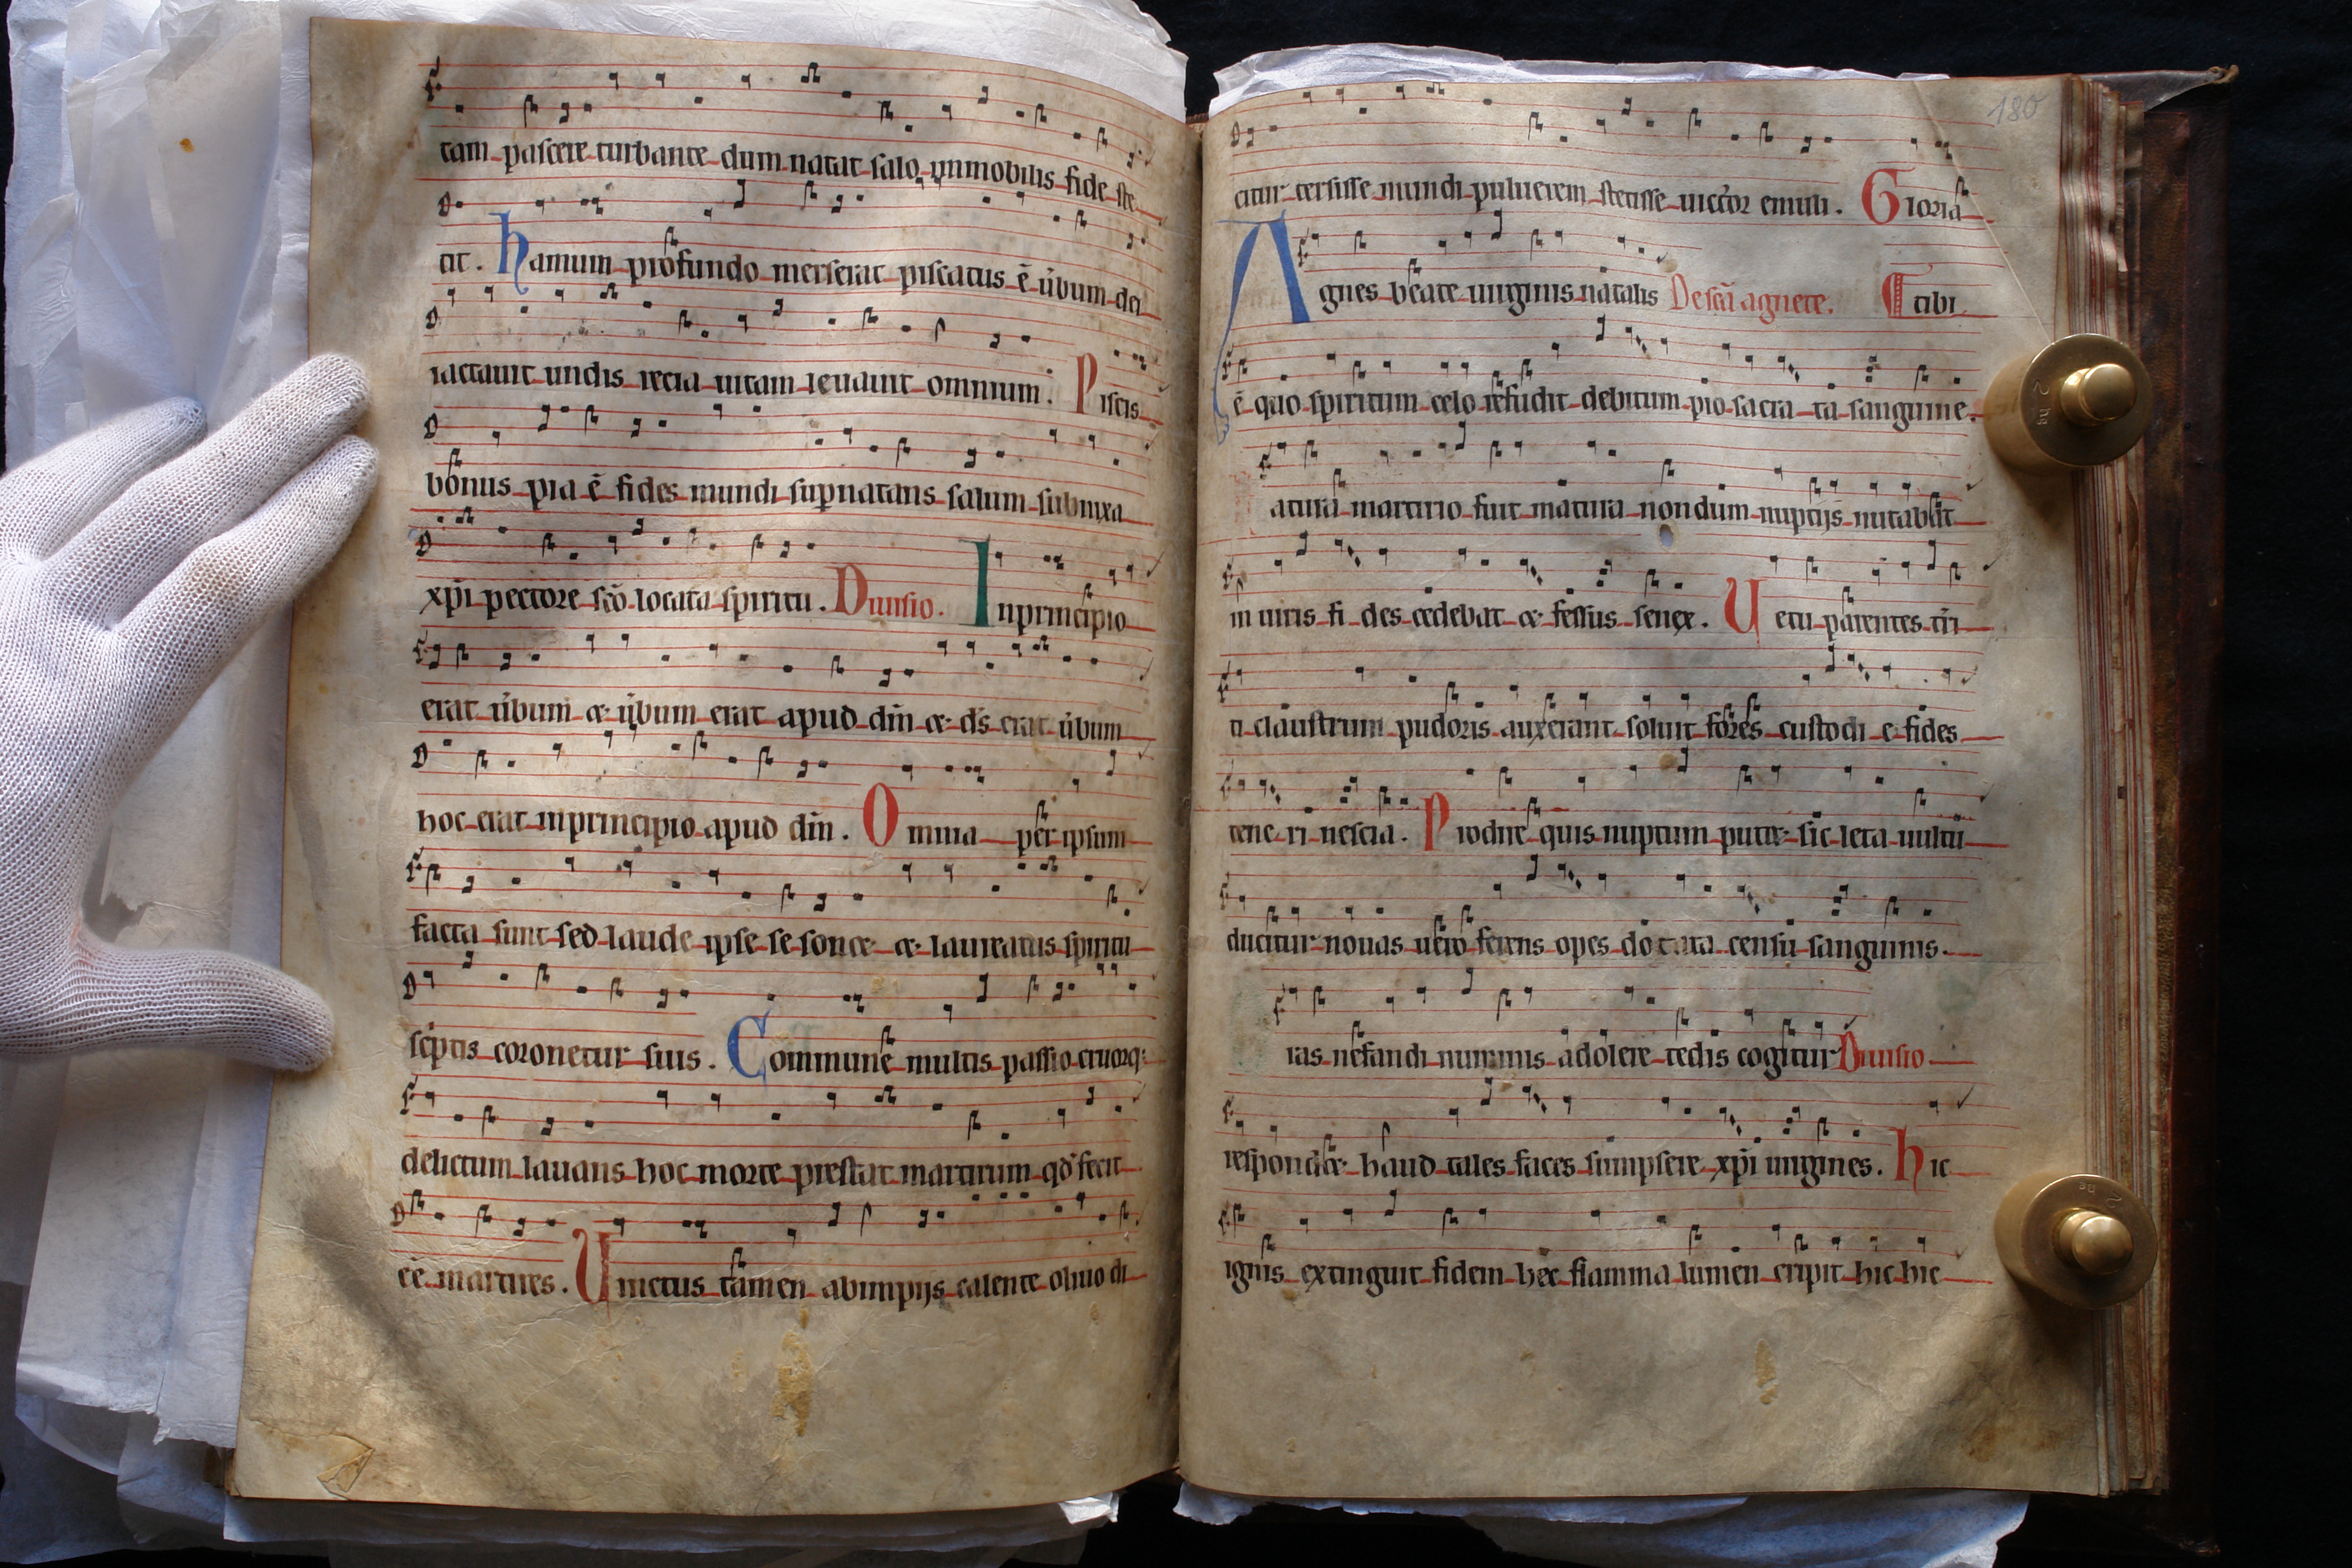 tam pascere turbante dum natat salo immobilis fide ste
tit. hamum profundo merserat piscatus ē ūbum dei
iactauit undis recia uitam leuauit omnium. Piscis
bonus pia ē fides mundi supnatans salum subnixa
xp̄i pectore sc̄o locata spiritu. Diuisio. Inprincipio
erat ūbum et ūbum erat apud dm̄ et ds̄ erat ūbum
hoc erat inprincipio apud dm̄. Omnia per ipsum
facta sunt sed laude ipse se sonet et laureatus spiritu
scp̄tis coronetur suis. Commune multis passio cruorq;
delictum lauans hoc morte prestat martirum qd fecit
ēē martires. Uinctus tamen abimpijs calente oliuo di
180
citur tersisse mundi puluerem stetisse uictor emuli. Gloria
Agnes beate uirginis natalis De scā agnete. tibi
ē quo spiritum celo refudit debitum pio sacra ta sanguine.
atura martirio fuit matura nondum nuptijs nutabat
in uiris fi des cedebat et fessus senex. Uetu parentes tr̄i
ti claustrum pudoris auxerant soluit fores custodi e fides
tene ri nescia. Prodire quis nuptum putet sic leta uultu
ducitur nouas uiro ferens opes dotata censu sanguinis.
ras nefandi numinis adolere tedis cogitur Diuisio
respondet haud tales faces sumpsere xp̄i uirgines. hic
ignis extinguit fidem hec flamma lumen eripit hic hic